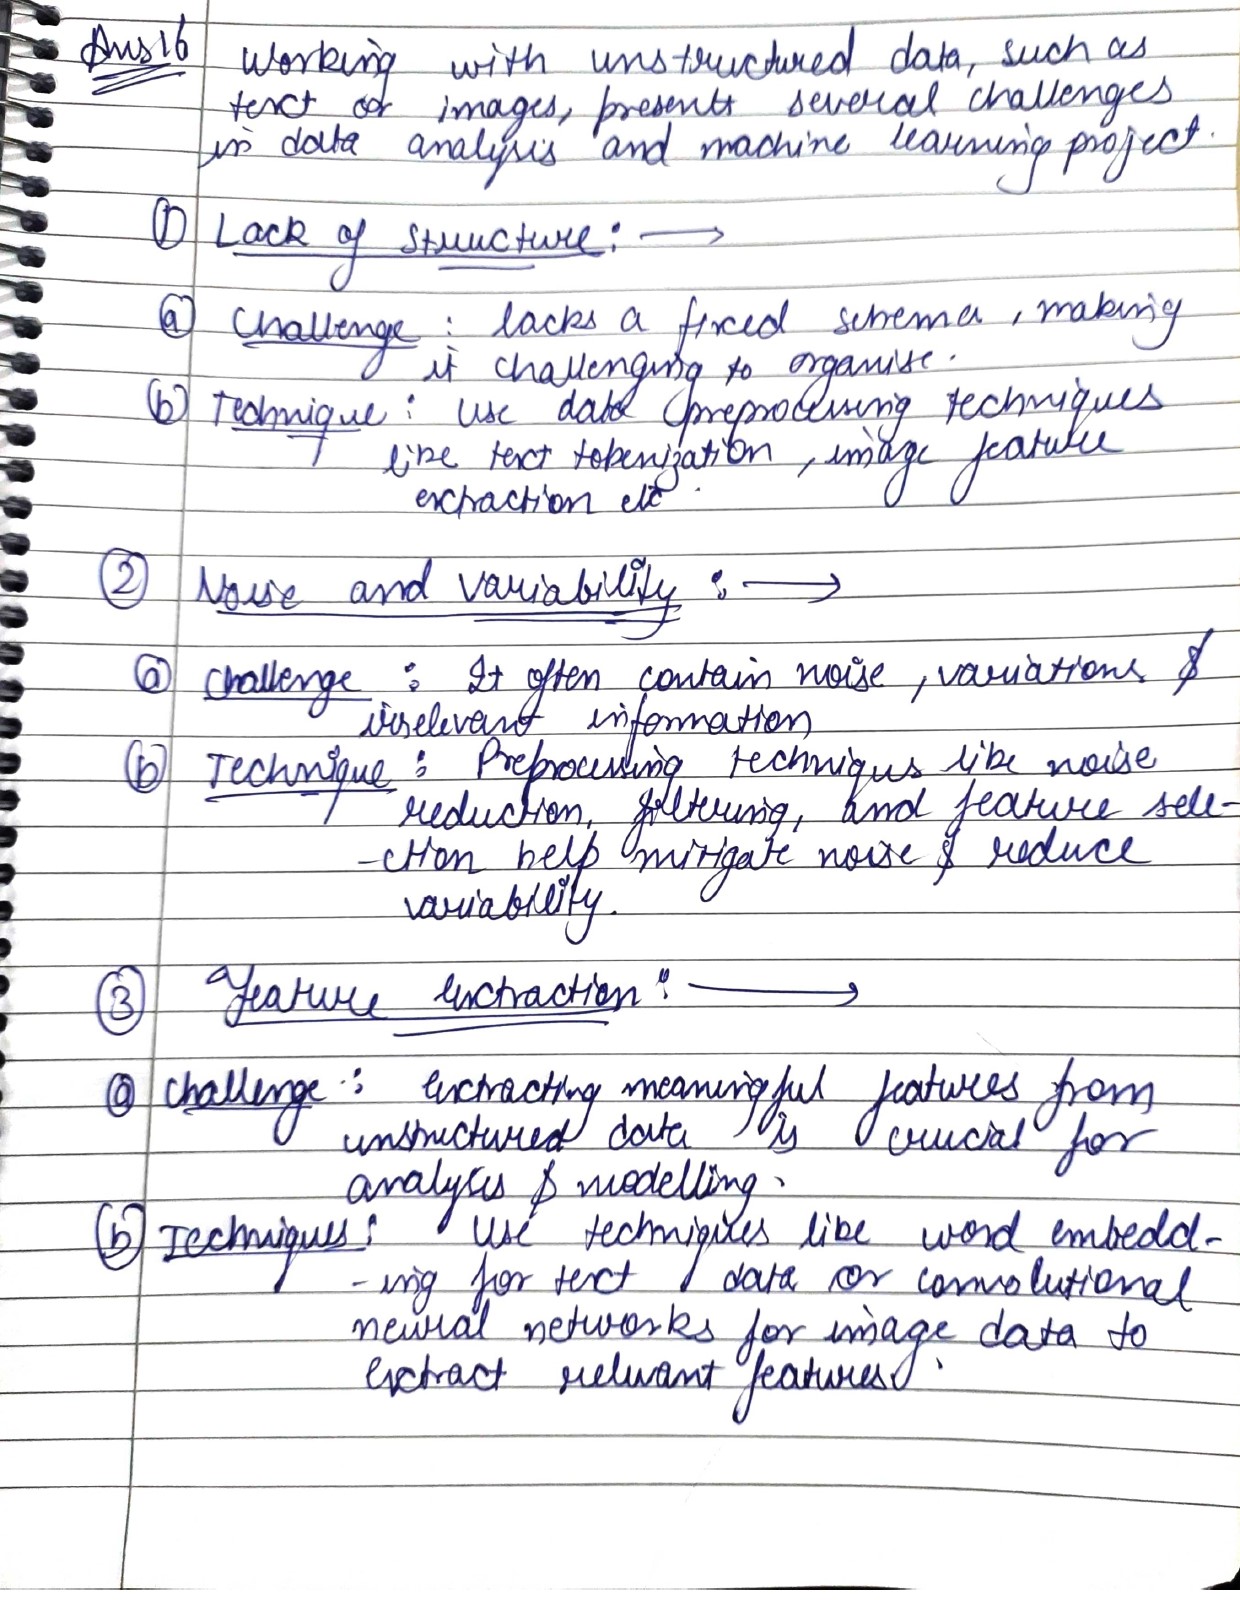 Ans 16 Working with unstructured data, such as
text or images, presents several challenges
in data analysis and machine learning project.
① Lack of structure: →
ⓐ Challenge : lacks a fixed schema, making
it challenging to organise.
ⓑ Technique : Use data preprocessing techniques
like text tokenization, image feature
extraction etc.
② Noise and variability : →
ⓐ Challenge : It often contain noise, variations &
irrelevant information
ⓑ Technique : Preprocessing techniqus like noise
reduction, filtering, and feature sele-
-ction help mitigate noise & reduce
variability.
③ Feature extraction : →
ⓐ Challenge : extracting meaningful features from
unstructured data is crucial for
analysis & modelling.
ⓑ Techniques : Use techniques like word embedd-
-ing for text data or convolutional
neural networks for image data to
extract relevant features.